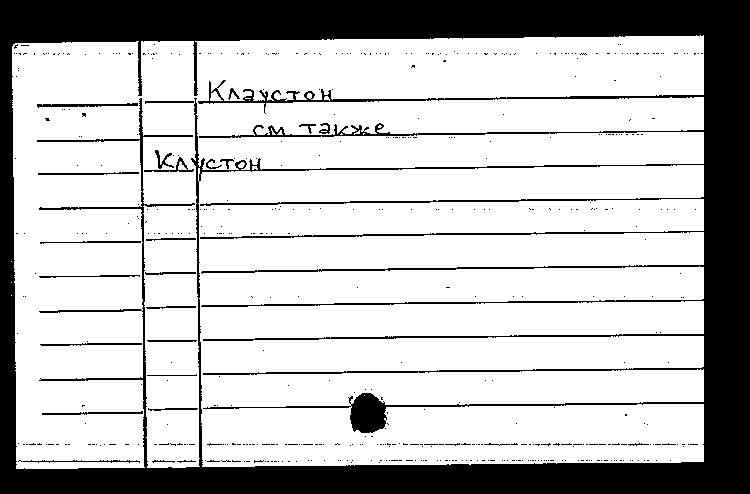 Клаустон
см. также
Клустон